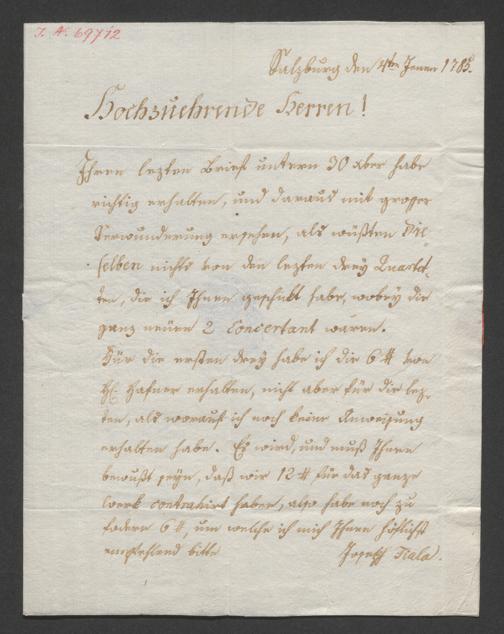 I. N. 69712
Salzburg den 4ten Jenner 1785.
Hochzuehrende Herren!
Ihren lezten Brief untern 30 xber habe
richtig erhalten, und daraus mit grosser
Verwunderung ersehen, als wüßten Die
selben nichts von den lezten drey Quartet-
ten, die ich Ihnen geschickt habe, wobey die
ganz neüen 2 Concertant waren.
Für die ersten drey habe ich die 6 # von
H: Hafner erhalten, nicht aber für die lez-
ten, als worauf ich noch keine Anweisung
erhalten habe. Es wird, und muß Ihnen
bewußt seyn, daß wir 12 # für das ganze
Werk contrahirt haben, also habe noch zu
fodern 6 #, um welche ich mich Ihnen höflichst
empfehlend bitte Joseph Fiala.